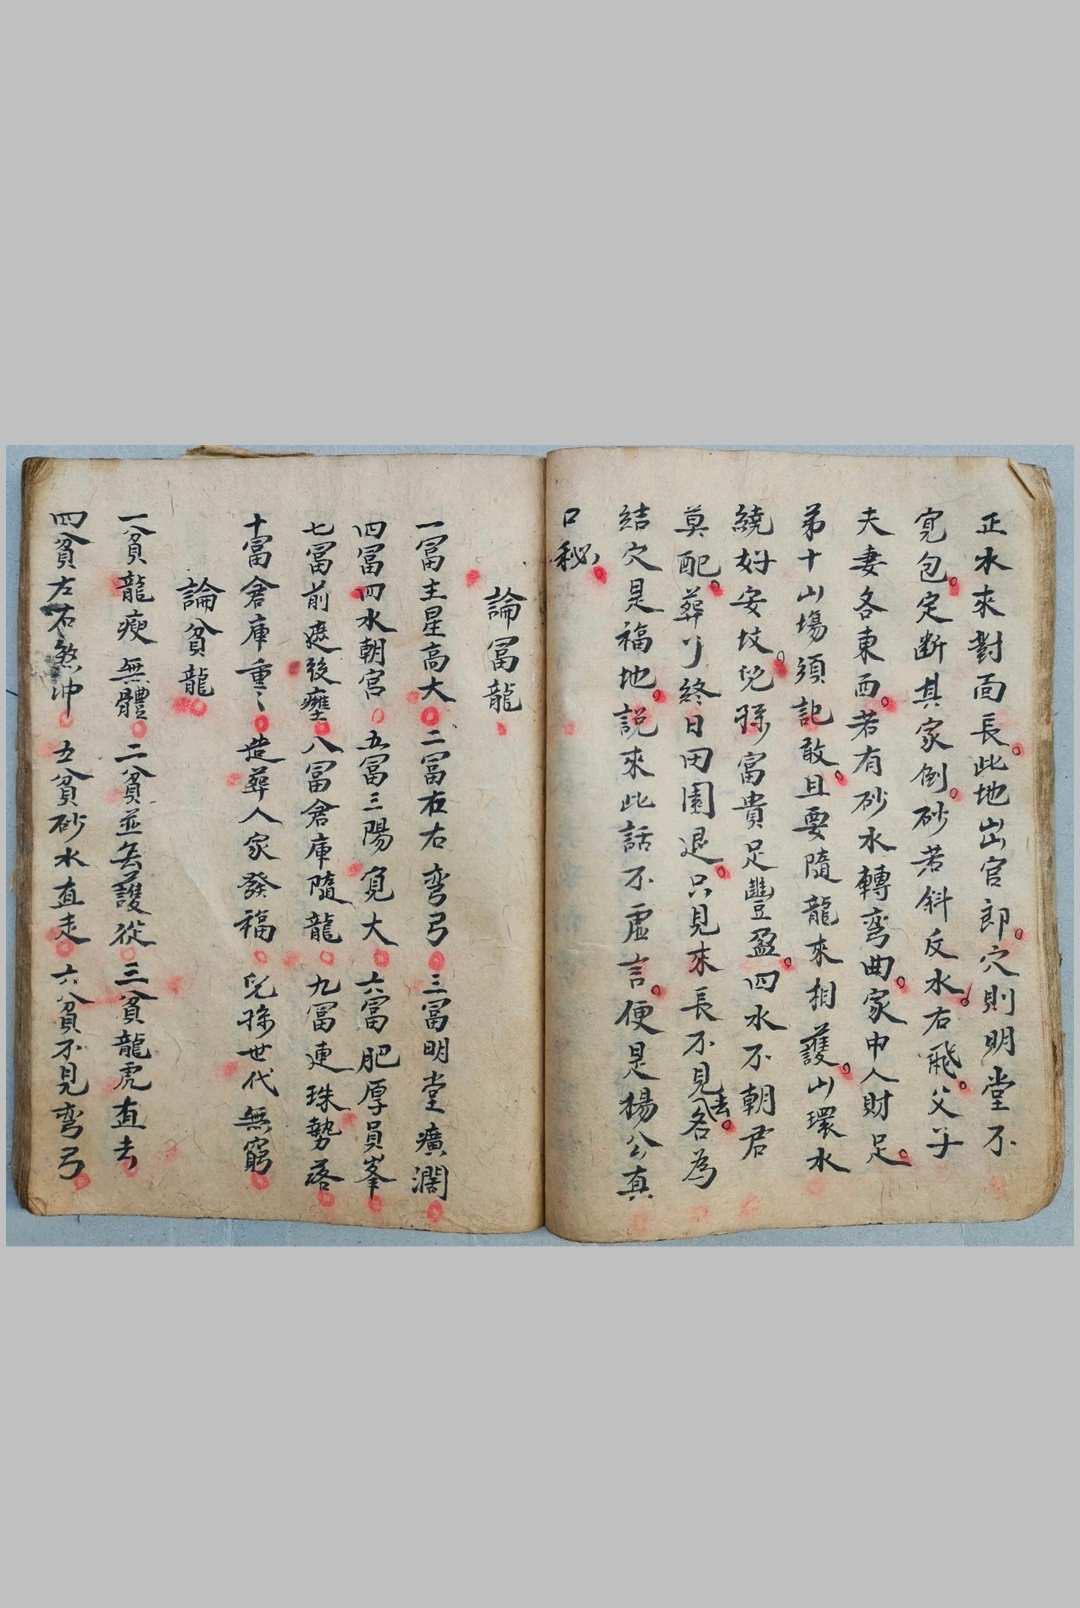 正水來對面長。此地出官郎。穴則明堂不
寛包。定断其家倒。砂若斜反水右飛。父子
夫妻各東西。若有砂水轉弯曲。家中人財足。
弟十山塲須記敢。且要隨龍來相護。山環水
繞好安坟。兒孫富貴足豐盈。四水不朝君
莫配。葬了終日田園退。只見來長不見去。名為
結穴是福地。説來此話不虚言。便是楊公真
口秘。
論冨龍
一冨主星高大。二冨左右弯弓。三冨明堂廣濶。
四冨四水朝宮。五冨三陽寛大。六冨肥厚員峯。
七冨前遮後擁。八冨倉庫隨龍。九冨連珠勢落。
十冨倉庫重〻。造葬人家發福。兒孫世代無窮。
論貧龍
一貧龍瘦無體。二貧並無護從。三貧龍虎直去。
四貧左右煞冲。五貧砂水直走。六貧不見弯弓。